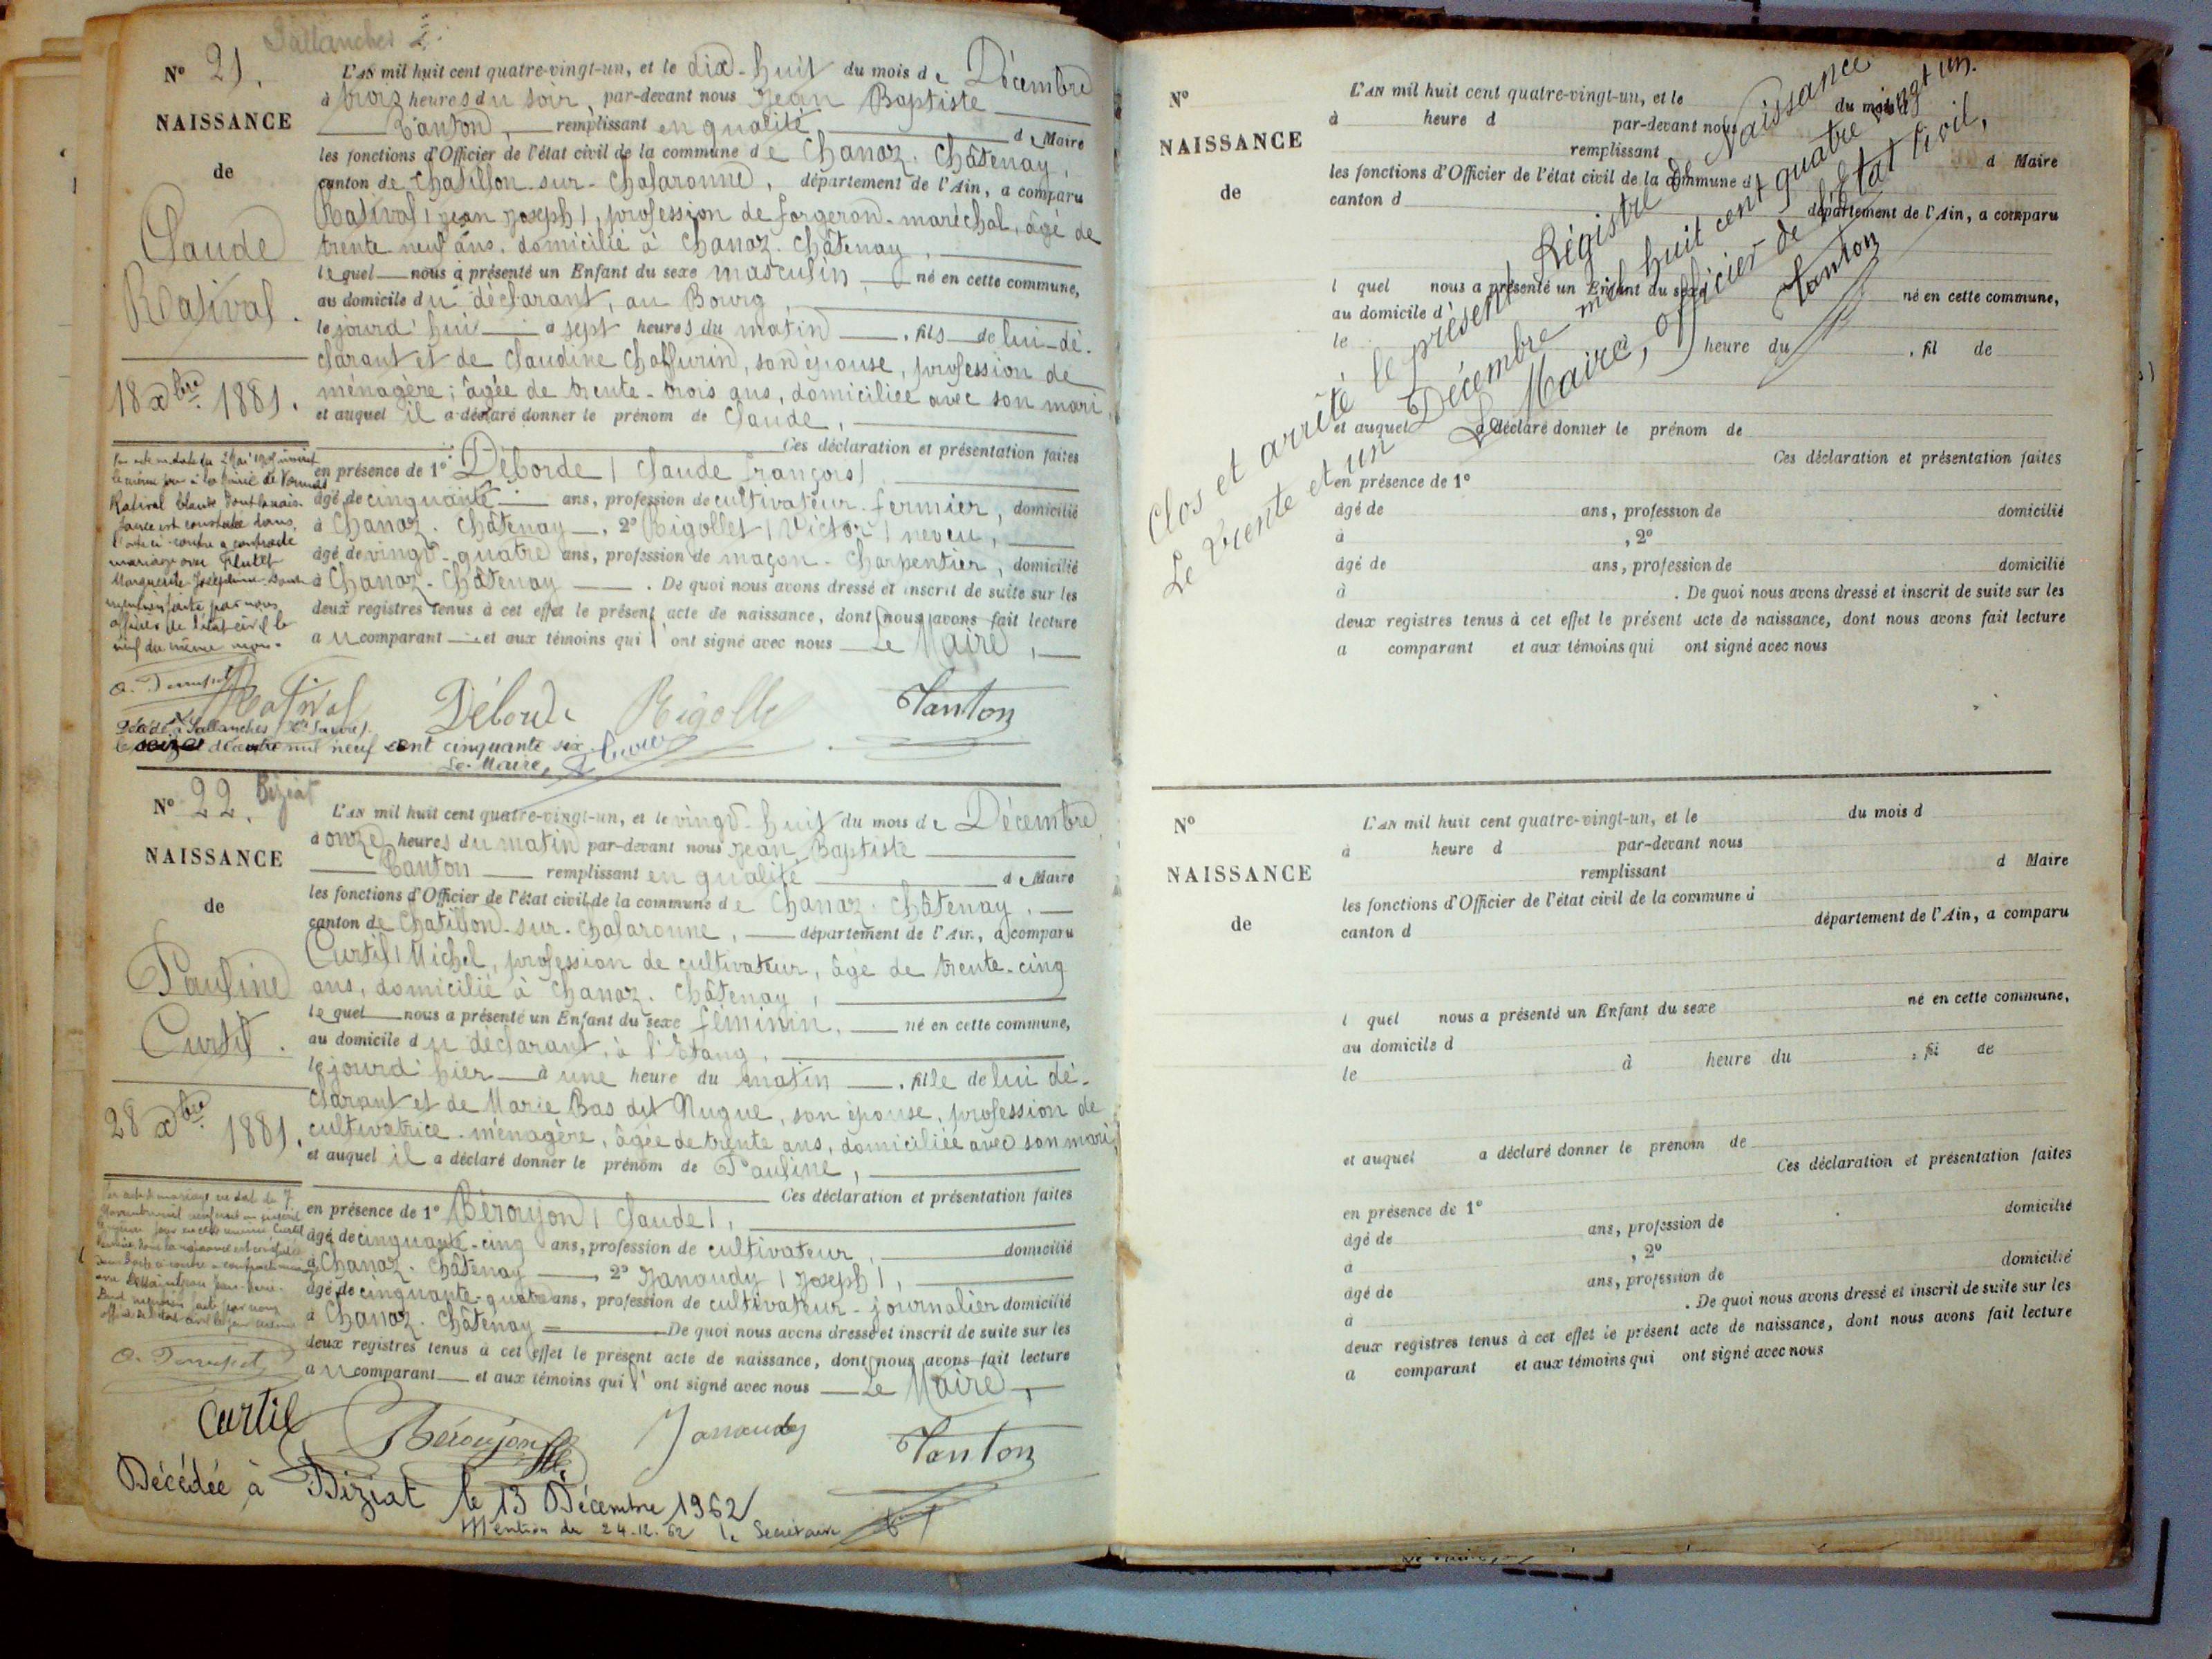 Sallanches
N° 21.
NAISSANCE
de
Claude
Rativat.
18 xbre 1881.
L'AN mil huit cent quatre-vingt-un, et le dix-huit du mois de Décembre
à trois heures du soir, par-devant nous Jean Baptiste
Tanton, remplissant en qualité de Maire
les fonctions d'Officier de l'état civil de la commune de Chanoz-Châtenay,
canton de Chatillon-sur-Chalaronne, département de l'Ain, a comparu
Rativat (Jean Joseph), profession de forgeron-maréchal, âgé de
trente neuf ans, domicilié à Chanoz-Châtenay,
lequel nous a présenté un Enfant du sexe masculin, né en cette commune,
au domicile du déclarant, au Bourg,
le jourd'hui à sept heures du matin, fils de lui-dé-
clarant et de Claudine Chaffurin, son épouse, profession de
ménagère; âgée de trente-trois ans, domiciliée avec son mari,
et auquel il a déclaré donner le prénom de Claude,
Ces déclaration et présentation faites
en présence de 1° Déborde (Claude François)
âgé de cinquante ans, profession de cultivateur-fermier, domicilié
à Chanoz-Châtenay, 2° Rigollet (Victor) neveu,
âgé de vingt-quatre ans, profession de maçon-charpentier, domicilié
à Chanoz-Châtenay. De quoi nous avons dressé et inscrit de suite sur les
deux registres tenus à cet effet le présent acte de naissance, dont nous avons fait lecture
au comparant et aux témoins qui l'ont signé avec nous Le Maire,
le même jour à la Mairie de Vonnas
Rativat Claude dont la nais-
sance est constatée dans
l'acte ci-contre a contracté
mariage avec
Marguerite Joséphine. Dont
mention faite par nous
officier de l'état civil le
neuf du même mois.
Rativat Déborde Rigollet Tanton
Décédé à Sallanches (Hte Savoie)
le seize décembre mil neuf cent cinquante six
Le Maire,
N° 22. Biziat
NAISSANCE
de
Pauline
Curtil.
28 xbre 1881.
L'AN mil huit cent quatre-vingt-un, et le vingt-huit du mois de Décembre,
à onze heures du matin par-devant nous Jean Baptiste
Tanton remplissant en qualité de Maire
les fonctions d'Officier de l'état civil de la commune de Chanoz-Châtenay,
canton de Chatillon-sur-Chalaronne, département de l'Ain, a comparu
Curtil Michel, profession de cultivateur, âgé de trente-cinq
ans, domicilié à Chanoz-Châtenay,
lequel nous a présenté un Enfant du sexe féminin, né en cette commune,
au domicile du déclarant, à l'Etang,
le jourd'hier à une heure du matin, fille de lui dé-
clarant et de Marie Bas dit Nugue, son épouse, profession de
cultivatrice-ménagère, âgée de trente ans, domiciliée avec son mari,
et auquel il a déclaré donner le prénom de Pauline,
Ces déclaration et présentation faites
en présence de 1° Béroujon (Claude),
âgé de cinquante-cinq ans, profession de cultivateur, domicilié
à Chanoz-Châtenay, 2° Janaudy (Joseph),
âgé de cinquante-quatre ans, profession de cultivateur-journalier domicilié
à Chanoz-Châtenay De quoi nous avons dressé et inscrit de suite sur les
deux registres tenus à cet effet le présent acte de naissance, dont nous avons fait lecture
au comparant et aux témoins qui l'ont signé avec nous Le Maire,
Curtil Béroujon Janaudy Tanton
Décédée à Biziat le 13 Décembre 1962
Mention du 24.12.62 le Secrétaire
N°
NAISSANCE
de
L'AN mil huit cent quatre-vingt-un, et le du mois d
à heure d par-devant nous
remplissant d Maire
les fonctions d'Officier de l'état civil de la commune d
canton d département de l'Ain, a comparu
l quel nous a présenté un Enfant du sexe né en cette commune,
au domicile d
le à heure du , fil de
et auquel a déclaré donner le prénom de
Ces déclaration et présentation faites
en présence de 1°
âgé de ans, profession de domicilié
à , 2°
âgé de ans, profession de domicilié
à . De quoi nous avons dressé et inscrit de suite sur les
deux registres tenus à cet effet le présent acte de naissance, dont nous avons fait lecture
a comparant et aux témoins qui ont signé avec nous
Clos et arrêté le présent Régistre de Naissance
Le trente et un Décembre mil huit cent quatre vingt un.
Le Maire, officier de l'état civil,
Tanton
N°
NAISSANCE
de
L'AN mil huit cent quatre-vingt-un, et le du mois d
à heure d par-devant nous
remplissant d Maire
les fonctions d'Officier de l'état civil de la commune d
canton d département de l'Ain, a comparu
l quel nous a présenté un Enfant du sexe né en cette commune,
au domicile d
le à heure du , fil de
et auquel a déclaré donner le prénom de
Ces déclaration et présentation faites
en présence de 1°
âgé de ans, profession de domicilié
à , 2°
âgé de ans, profession de domicilié
à . De quoi nous avons dressé et inscrit de suite sur les
deux registres tenus à cet effet le présent acte de naissance, dont nous avons fait lecture
a comparant et aux témoins qui ont signé avec nous